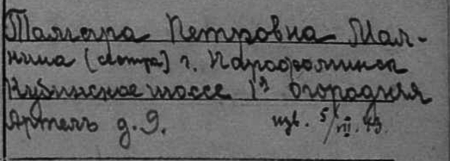 Тамара Петровна Мал-
нина (сестра) г. Нарофоминск
Кубинское шоссе 1я огородная
Артель д. 9. изв. 5/VII. 43